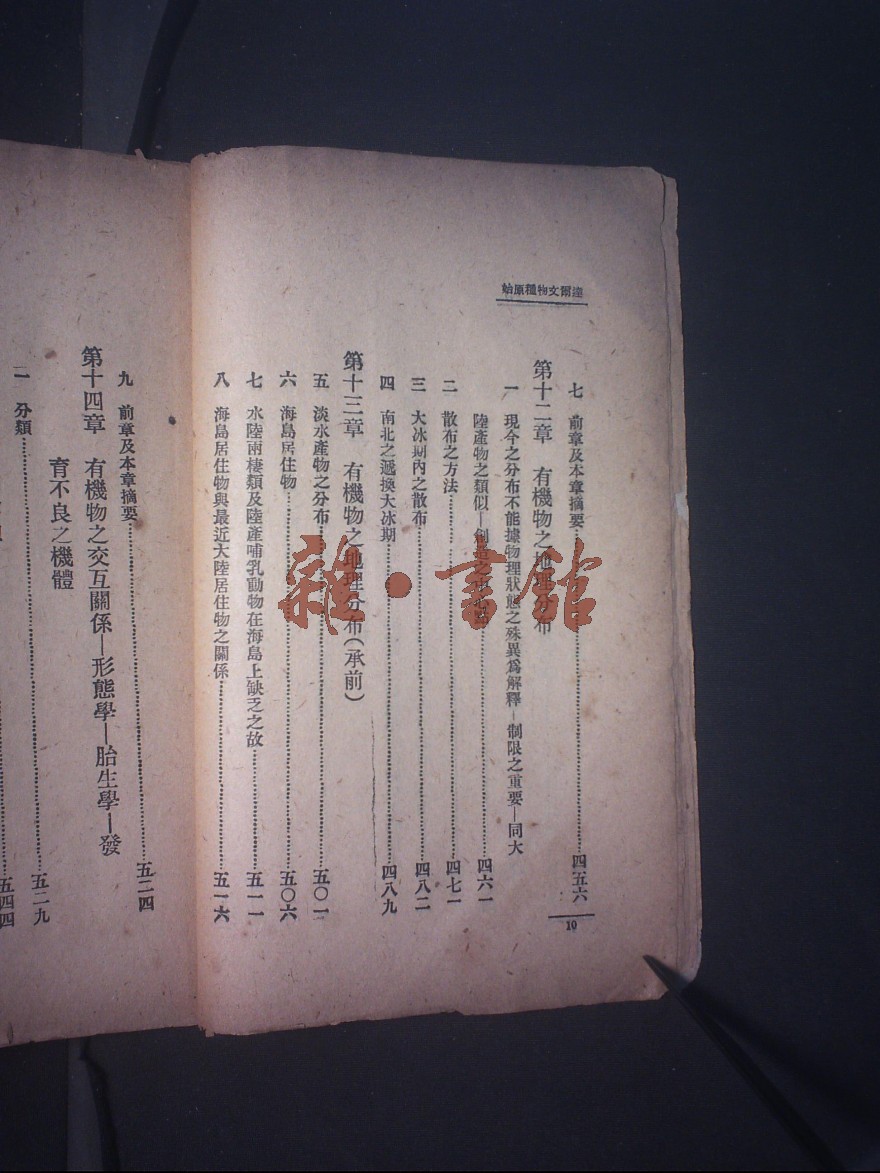 達爾文物種原始
七 前章及本章摘要 四五六
第十二章 有機物之地理分布
一 現今之分布不能據物理狀態之殊異爲解釋—制限之重要—同大
陸產物之類似—創造之中心 四六一
二 散布之方法 四七一
三 大冰期內之散布 四八二
四 南北之遞換大冰期 四八九
第十三章 有機物之地理分布(承前)
五 淡水產物之分布 五〇一
六 海島居住物 五〇六
七 水陸兩棲類及陸產哺乳動物在海島上缺乏之故 五一一
八 海島居住物與最近大陸居住物之關係 五一六
10
九 前章及本章摘要 五二四
第十四章 有機物之交互關係—形態學—胎生學—發
育不良之機體
一 分類 五二九
五四四
雜·書館